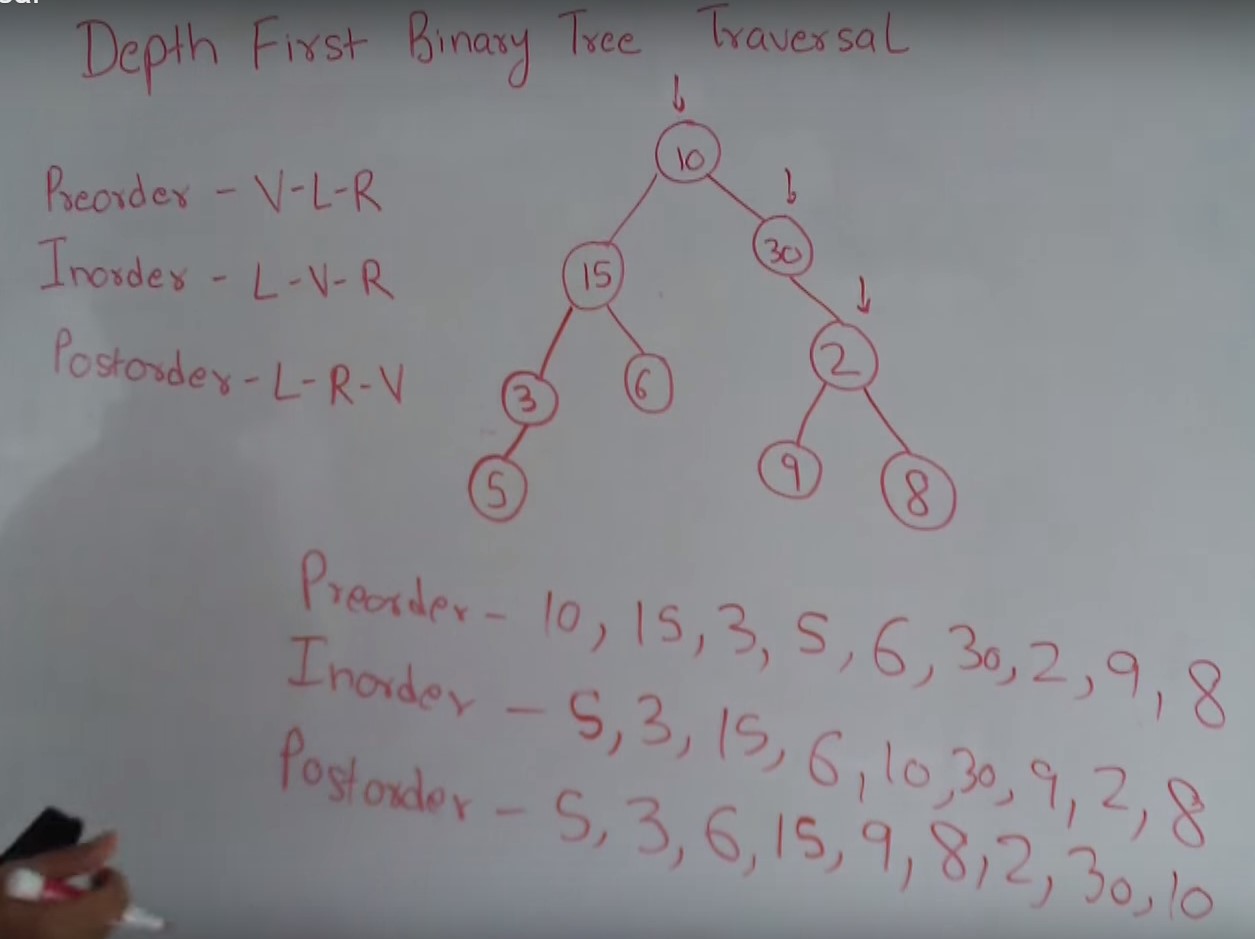 Depth First Binary Tree Traversal
10
Preorder - V-L-R
30
Inorder - L-V-R
15
2
Postorder - L-R-V
3
6
9
5
8
Preorder - 10, 15, 3, 5, 6, 30, 2, 9, 8
Inorder - 5, 3, 15, 6, 10, 30, 9, 2, 8
Postorder - 5, 3, 6, 15, 9, 8, 2, 30, 10